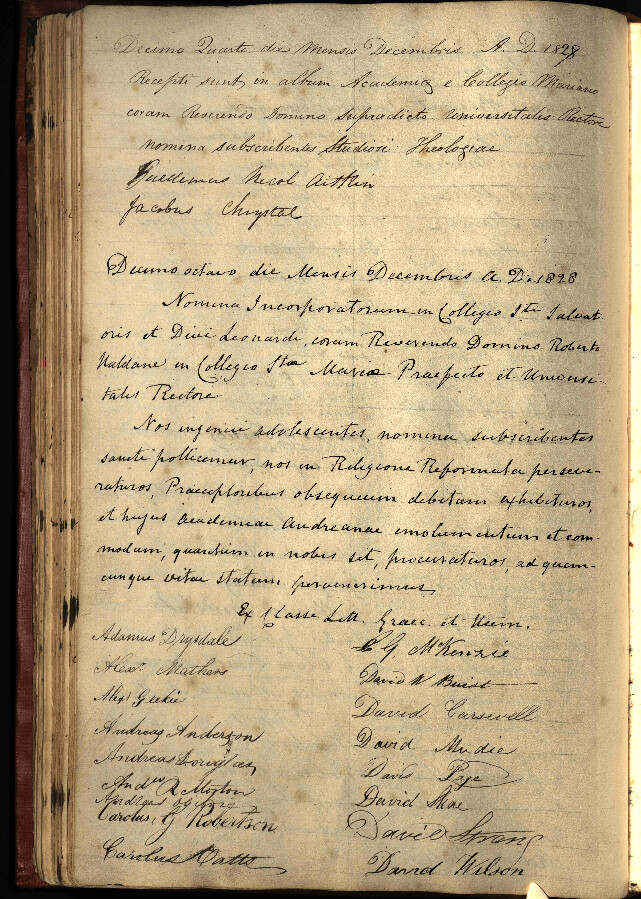 Decimo Quarto die Mensis Decembris A. D. 1827
Recepti sunt in album Academiæ e Collegio Mariano
coram Reverendo Domino supradicto Universitatis Rectore
nomina subscribentes Studiosi Theologiae
Nicol Aitkin
Jacobus Chrystal
Decimo octavo die Mensis Decembris A. D. 1828
Nomina Incorporatorum in Collegio Sti Salvat-
oris et Divi Leonardi, coram Reverendo Domino Roberto
Haldane in Collegio Stae Mariae Praefecto et Universi-
tatis Rectore
Nos ingenui adolescentes, nomina subscribentes
sancte pollicemur, nos in Religione Reformata perseve-
raturos, Praeceptoribus obsequium debitum exhibituros,
et hujus Academiae Andreanae emolumentum et com-
modum, quantum in nobis sit, procuraturos, ad quem-
cunque vitae statum pervenerimus
Ex Classe Litt. Graec. et Hum.
Adamus Drysdale
Alexr. Mathers
Alexr Geekie
Andreas Anderson
Andreas
Andw R Morton
Andreas
Carolus G Robertson
Carolus Watts
C G McKenzie
David W Buist
David Carswell
David Mudie
David Page
David Rae
David Strang
David Wilson